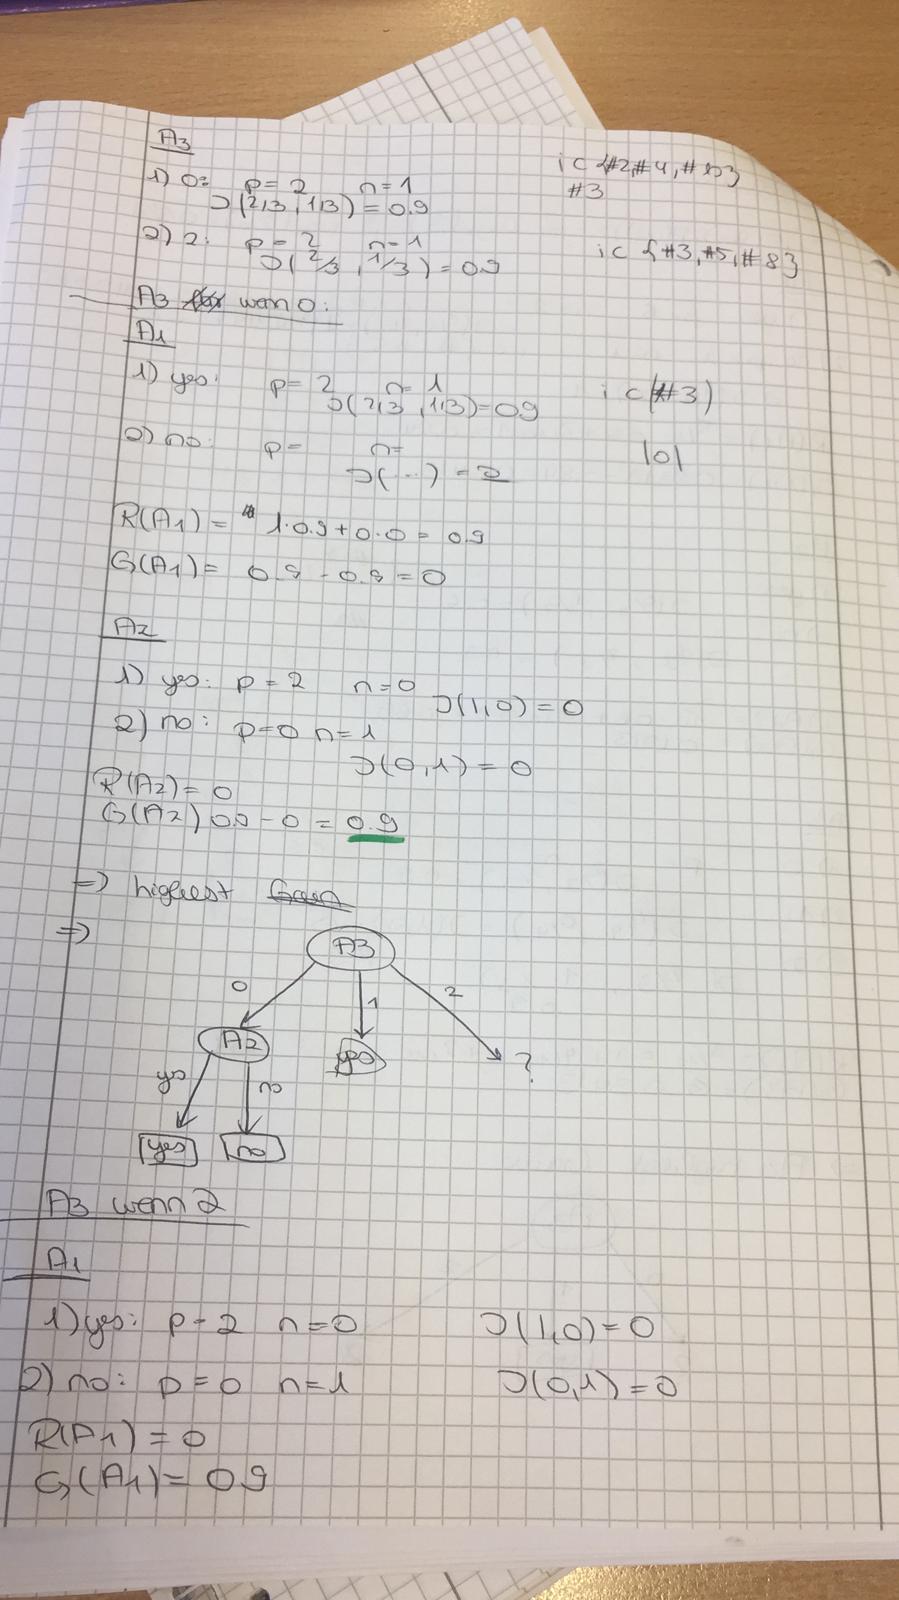 A3
1) 0: p= 2 n=1 i ∈ {#2,#4,#10}
I(2/3, 1/3) = 0.9 #3
2) 2: p= 2 n=1
I(2/3, 1/3) = 0.9 i ∈ {#3, #5, #8}
A3 wenn 0:
A1
1) yes: p= 2 n= 1 i ∈ (#3)
I(2/3, 1/3)=0.9
2) no: p= n= |0|
I(...) = 0
R(A1) = 1·0.9+0·0 = 0.9
G(A1)= 0.9 - 0.9 = 0
A2
1) yes: p= 2 n=0 I(1,0) = 0
2) no: p=0 n=1
I(0,1) = 0
R(A2)= 0
G(A2) 0.9 - 0 = 0.9
=> highest Gain
=>
A3
0 1 2
A2 yes ?
yes no
yes no
A3 wenn 2
A1
1) yes: p= 2 n=0 I(1,0)=0
2) no: p=0 n=1 I(0,1)=0
R(A1)=0
G(A1)= 0.9